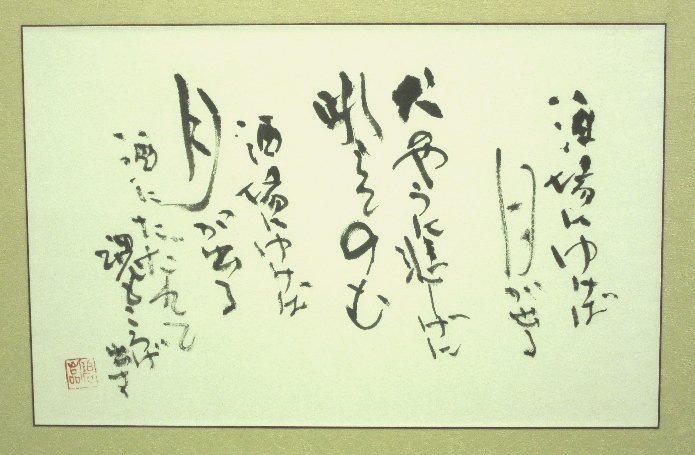 酒場にゆけば
月が出る
犬のやうに悲しげに
吼えてのむ
酒場にゆけば
月が出る
酒にたゞれて
魂もころげ出す